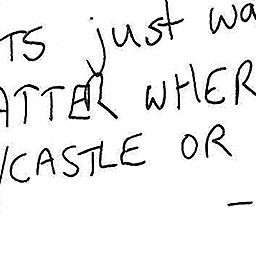 TS just wa
ATTER WHER
/CASTLE OR
–